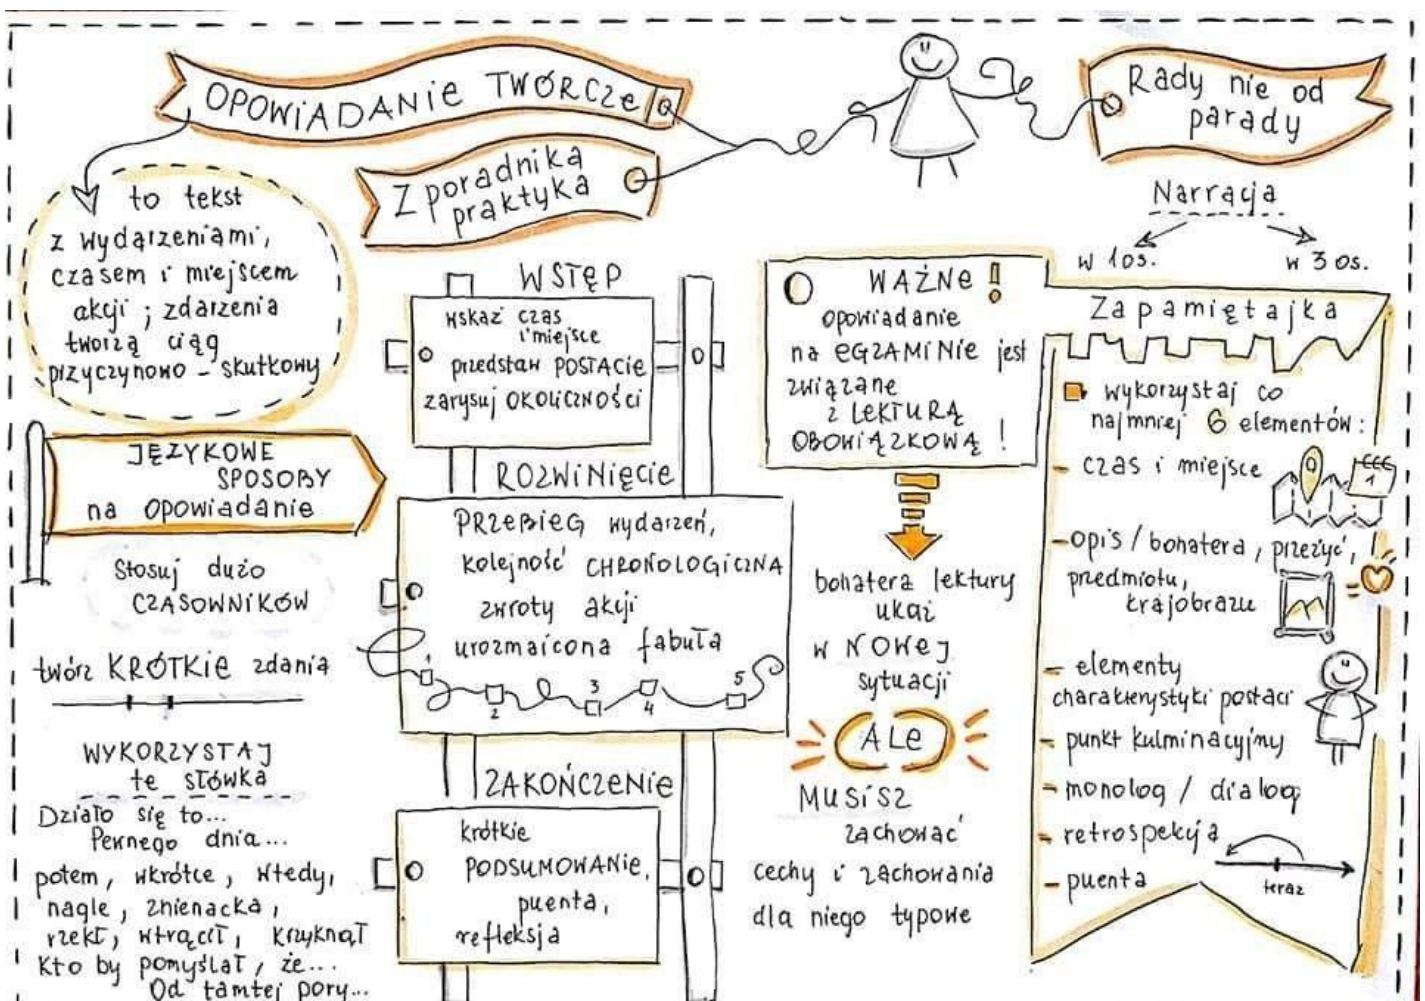 OPOWIADANIE TWÓRCZE
Z poradnika
praktyka
Rady nie od
parady
to tekst
z wydarzeniami,
czasem i miejscem
akcji ; zdarzenia
tworzą ciąg
przyczynowo - skutkowy
JĘZYKOWE
SPOSOBY
na opowiadanie
Stosuj dużo
CZASOWNIKÓW
twórz KRÓTKIE zdania
WYKORZYSTAJ
te słówka
Działo się to...
Pewnego dnia...
potem, wkrótce, wtedy,
nagle, znienacka,
rzekł, wtrącił, krzyknął
Kto by pomyślał, że...
Od tamtej pory...
WSTĘP
wskaż czas
i miejsce
przedstaw POSTACIE
zarysuj OKOLICZNOŚCI
ROZWINIĘCIE
PRZEBIEG wydarzeń,
kolejność CHRONOLOGICZNA
zwroty akcji
urozmaicona fabuła
1 2 3 4 5
ZAKOŃCZENIE
krótkie
PODSUMOWANIE,
puenta,
refleksja
WAŻNE !
opowiadanie
na EGZAMINIE jest
związane
z LEKTURĄ
OBOWIĄZKOWĄ !
bohatera lektury
ukaż
w NOWEJ
sytuacji
ALE
MUSISZ
zachować
cechy i zachowania
dla niego typowe
Narracja
w 1 os. w 3 os.
Zapamiętajka
wykorzystaj co
najmniej 6 elementów:
- czas i miejsce
1
- opis / bohatera, przeżyć,
przedmiotu,
krajobrazu
- elementy
charakterystyki postaci
- punkt kulminacyjny
- monolog / dialog
- retrospekcja
teraz
- puenta